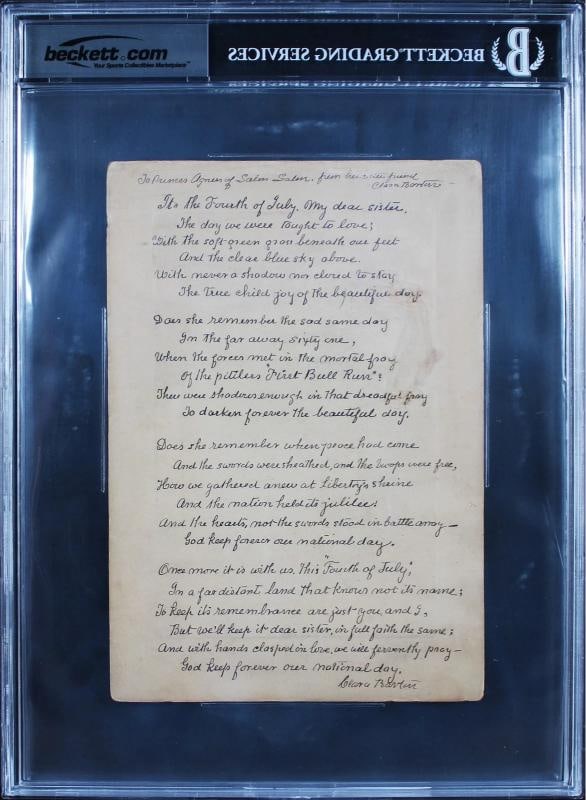 beckett.com
Your Sports Collectibles Marketplace
BECKETT GRADING SERVICES
B
To Princess Agnes of Salm Salm. from her sister friend
Clara Barton
It's the Fourth of July. My dear sister,
The day we were taught to love;
With the soft green grass beneath our feet
And the clear blue sky above.
With never a shadow nor cloud to stay
The true child joy of the beautiful day.
Does she remember the sad same day
In the far away sixty one,
When the forces met in the mortal fray
Of the pitiless "First Bull Run"?
There were shadows enough in that dreadful fray
To darken forever the beautiful day.
Does she remember when peace had come
And the swords were sheathed, and the troops were free,
How we gathered anew at Liberty's shrine
And the nation held its jubilee!
And the hearts, not the swords stood in battle array—
God keep forever our national day.
Once more it is with us. This "Fourth of July",
In a far distant land that knows not its name;
To keep its remembrance are just you, and I,
But we'll keep it dear sister, in full faith the same;
And with hands clasped in love, we will fervently pray—
God keep forever our national day.
Clara Barton